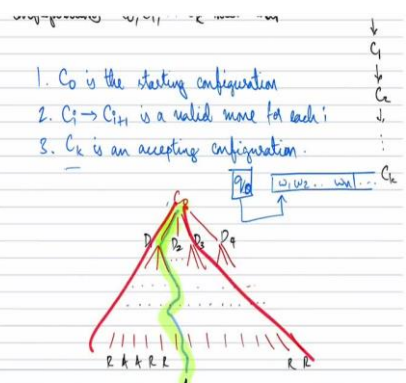 C₁
1. C₀ is the starting configuration
C₂
2. Cᵢ → Cᵢ₊₁ is a valid move for each i
3. Cₖ is an accepting configuration.
q₀ w₁ w₂ .. wₙ ... Cₖ
C
D₁ D₂ D₃ D₄
R A A R R R R
A